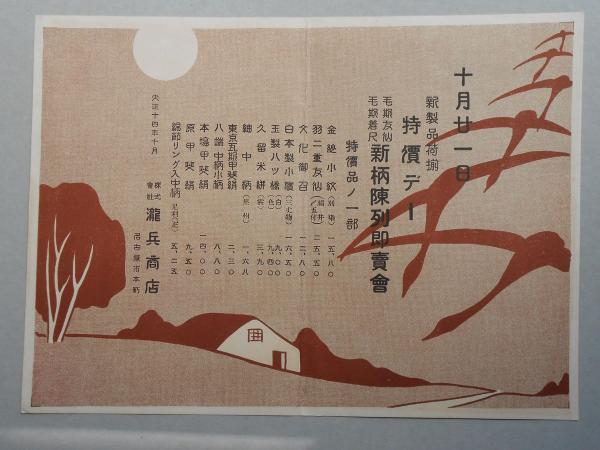 十月廿一日
新製品荷揃
特價デー
毛斯友仙
毛斯着尺
新柄陳列即賣會
特價品ノ一部
金紗小紋 一五、八〇
羽二重友仙 二五、五〇
文化御召 一二、八〇
白本製小濱 一六、五〇
玉製八ツ橋 (白) 九、〇〇 (色) 九、四〇
久留米絣 三、九〇
紬中柄 一、六八
東京瓦斯甲斐絹 二、三〇
八端中柄小柄 八、八〇
本場甲斐絹 一四、〇〇
原甲斐絹 九、五〇
綿節リング入中柄 五、二五
大正十四年十月
株式會社 瀧兵商店
名古屋市本町